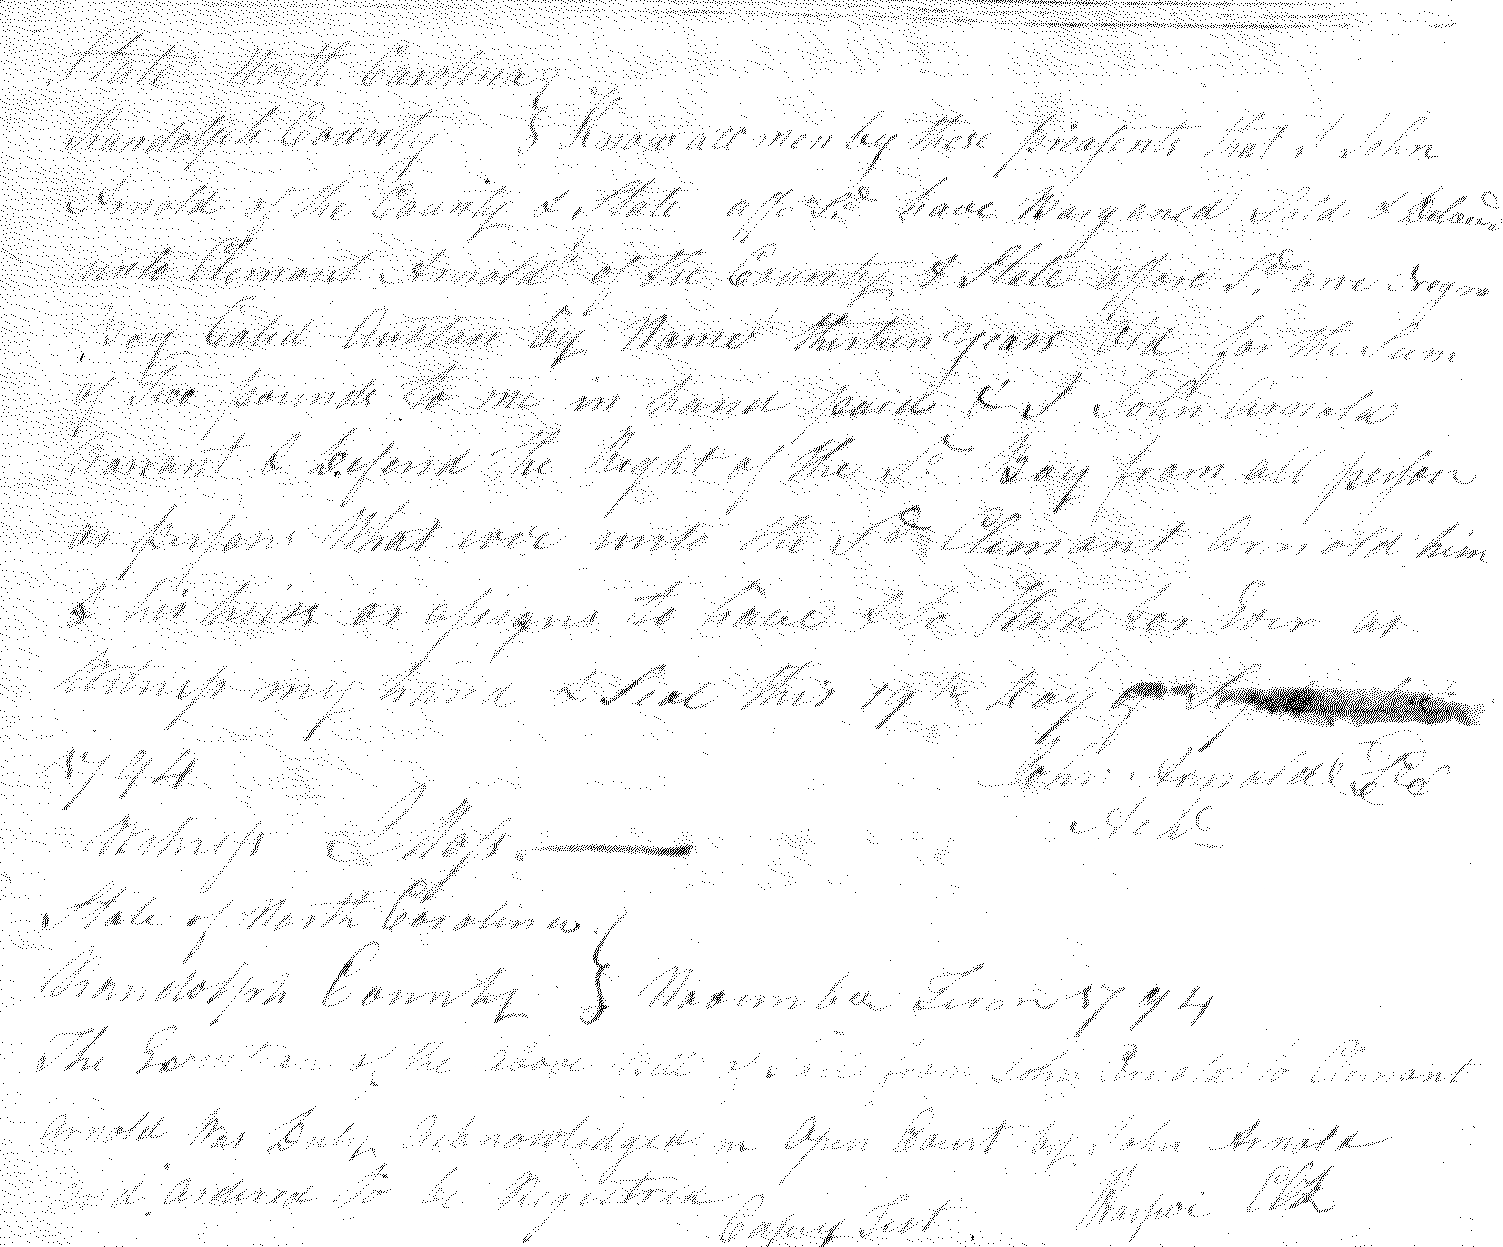 State North Carolina
Randolph County } Know all men by these presents that I John
Arnold of the County & State affore Sd have Bargained Sold & Deliverd
unto Clemont Arnold of the County & State affore Sd one negro
boy Caled by Name thirteen years Old for the Sum
of Two pounds to me in hand paid & I John Arnold
Warrant & Defend the Right of the Sd Boy from all person
or persons What ever unto the Sd Clemont Arnold him
& his heirs or assigns to have & to Hold for Ever as
Witness my hand & Seal this 19th Day
1794 John Arnold Seal
Witness Ack
State of North Carolina
Randolph County } November Term 1794
The Execution of the above Bill of Sale from John Arnold to Clemont
Arnold Was Duly Acknowledged in Open Court by John Arnold
and ordered To be Registered
Copy Test Harper Clk